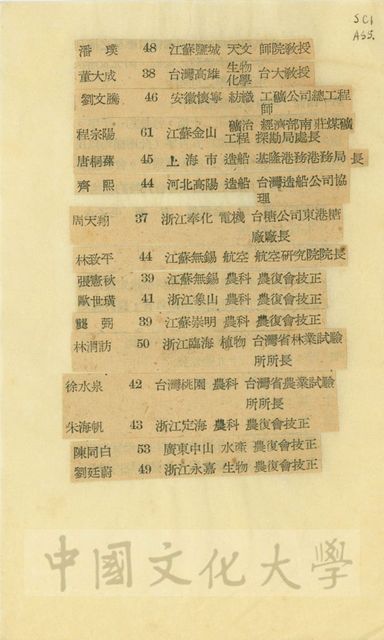 SCI
ASS.
潘璞 48 江蘇鹽城 天文 師院教授
董大成 38 台灣高雄 生物化學 台大教授
劉文騰 46 安徽懷寧 紡織 工礦公司總工程
師
程宗陽 61 江蘇金山 礦冶工程 經濟部南莊煤礦探勘局處長
唐桐蓀 45 上海市 造船 基隆港務港務局長
齊熙 44 河北高陽 造船 台灣造船公司協
理
周天翔 37 浙江奉化 電機 台糖公司東港糖
廠廠長
林致平 44 江蘇無錫 航空 航空研究院院長
張憲秋 39 江蘇無錫 農科 農復會技正
歐世璜 41 浙江象山 農科 農復會技正
龔弼 39 江蘇崇明 農科 農復會技正
林渭訪 50 浙江臨海 植物 台灣省林業試驗
所所長
徐水泉 42 台灣桃園 農科 台灣省農業試驗
所所長
朱海帆 43 浙江定海 農科 農復會技正
陳同白 53 廣東中山 水產 農復會技正
劉廷蔚 49 浙江永嘉 生物 農復會技正
中國文化大學